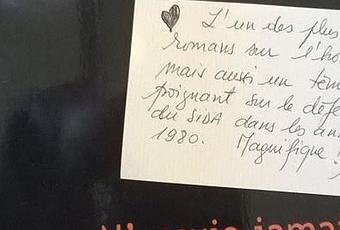 L'un des plus
romans sur l'ho
mais aussi un tém
poignant sur le dé
du SIDA dans les ann
1980. Magnifique !
N' jamai